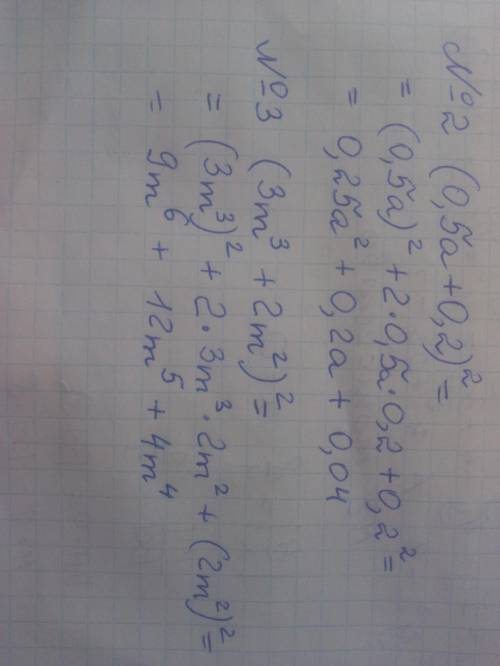 №2 (0,5a+0,2)²=
= (0,5a)² + 2·0,5a·0,2 + 0,2² =
= 0,25a² + 0,2a + 0,04
№3 (3m³ + 2m²)² =
= (3m³)² + 2·3m³·2m² + (2m²)² =
= 9m⁶ + 12m⁵ + 4m⁴